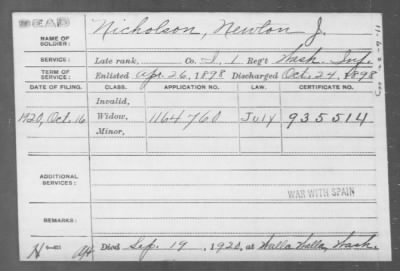 DEAD
NAME OF SOLDIER: Nicholson, Newton J.
SERVICE: Late rank, Co. I, 1 Reg't Wash. Inf.
TERM OF SERVICE: Enlisted Apr. 26, 1898 Discharged Oct. 24, 1898
DATE OF FILING. CLASS. APPLICATION NO. LAW. CERTIFICATE NO.
Invalid,
1920, Oct. 16 Widow, 1164760 July 935514
Minor,
ADDITIONAL SERVICES:
WAR WITH SPAIN
REMARKS:
Died Sep. 19, 1920, at Walla Walla, Wash.